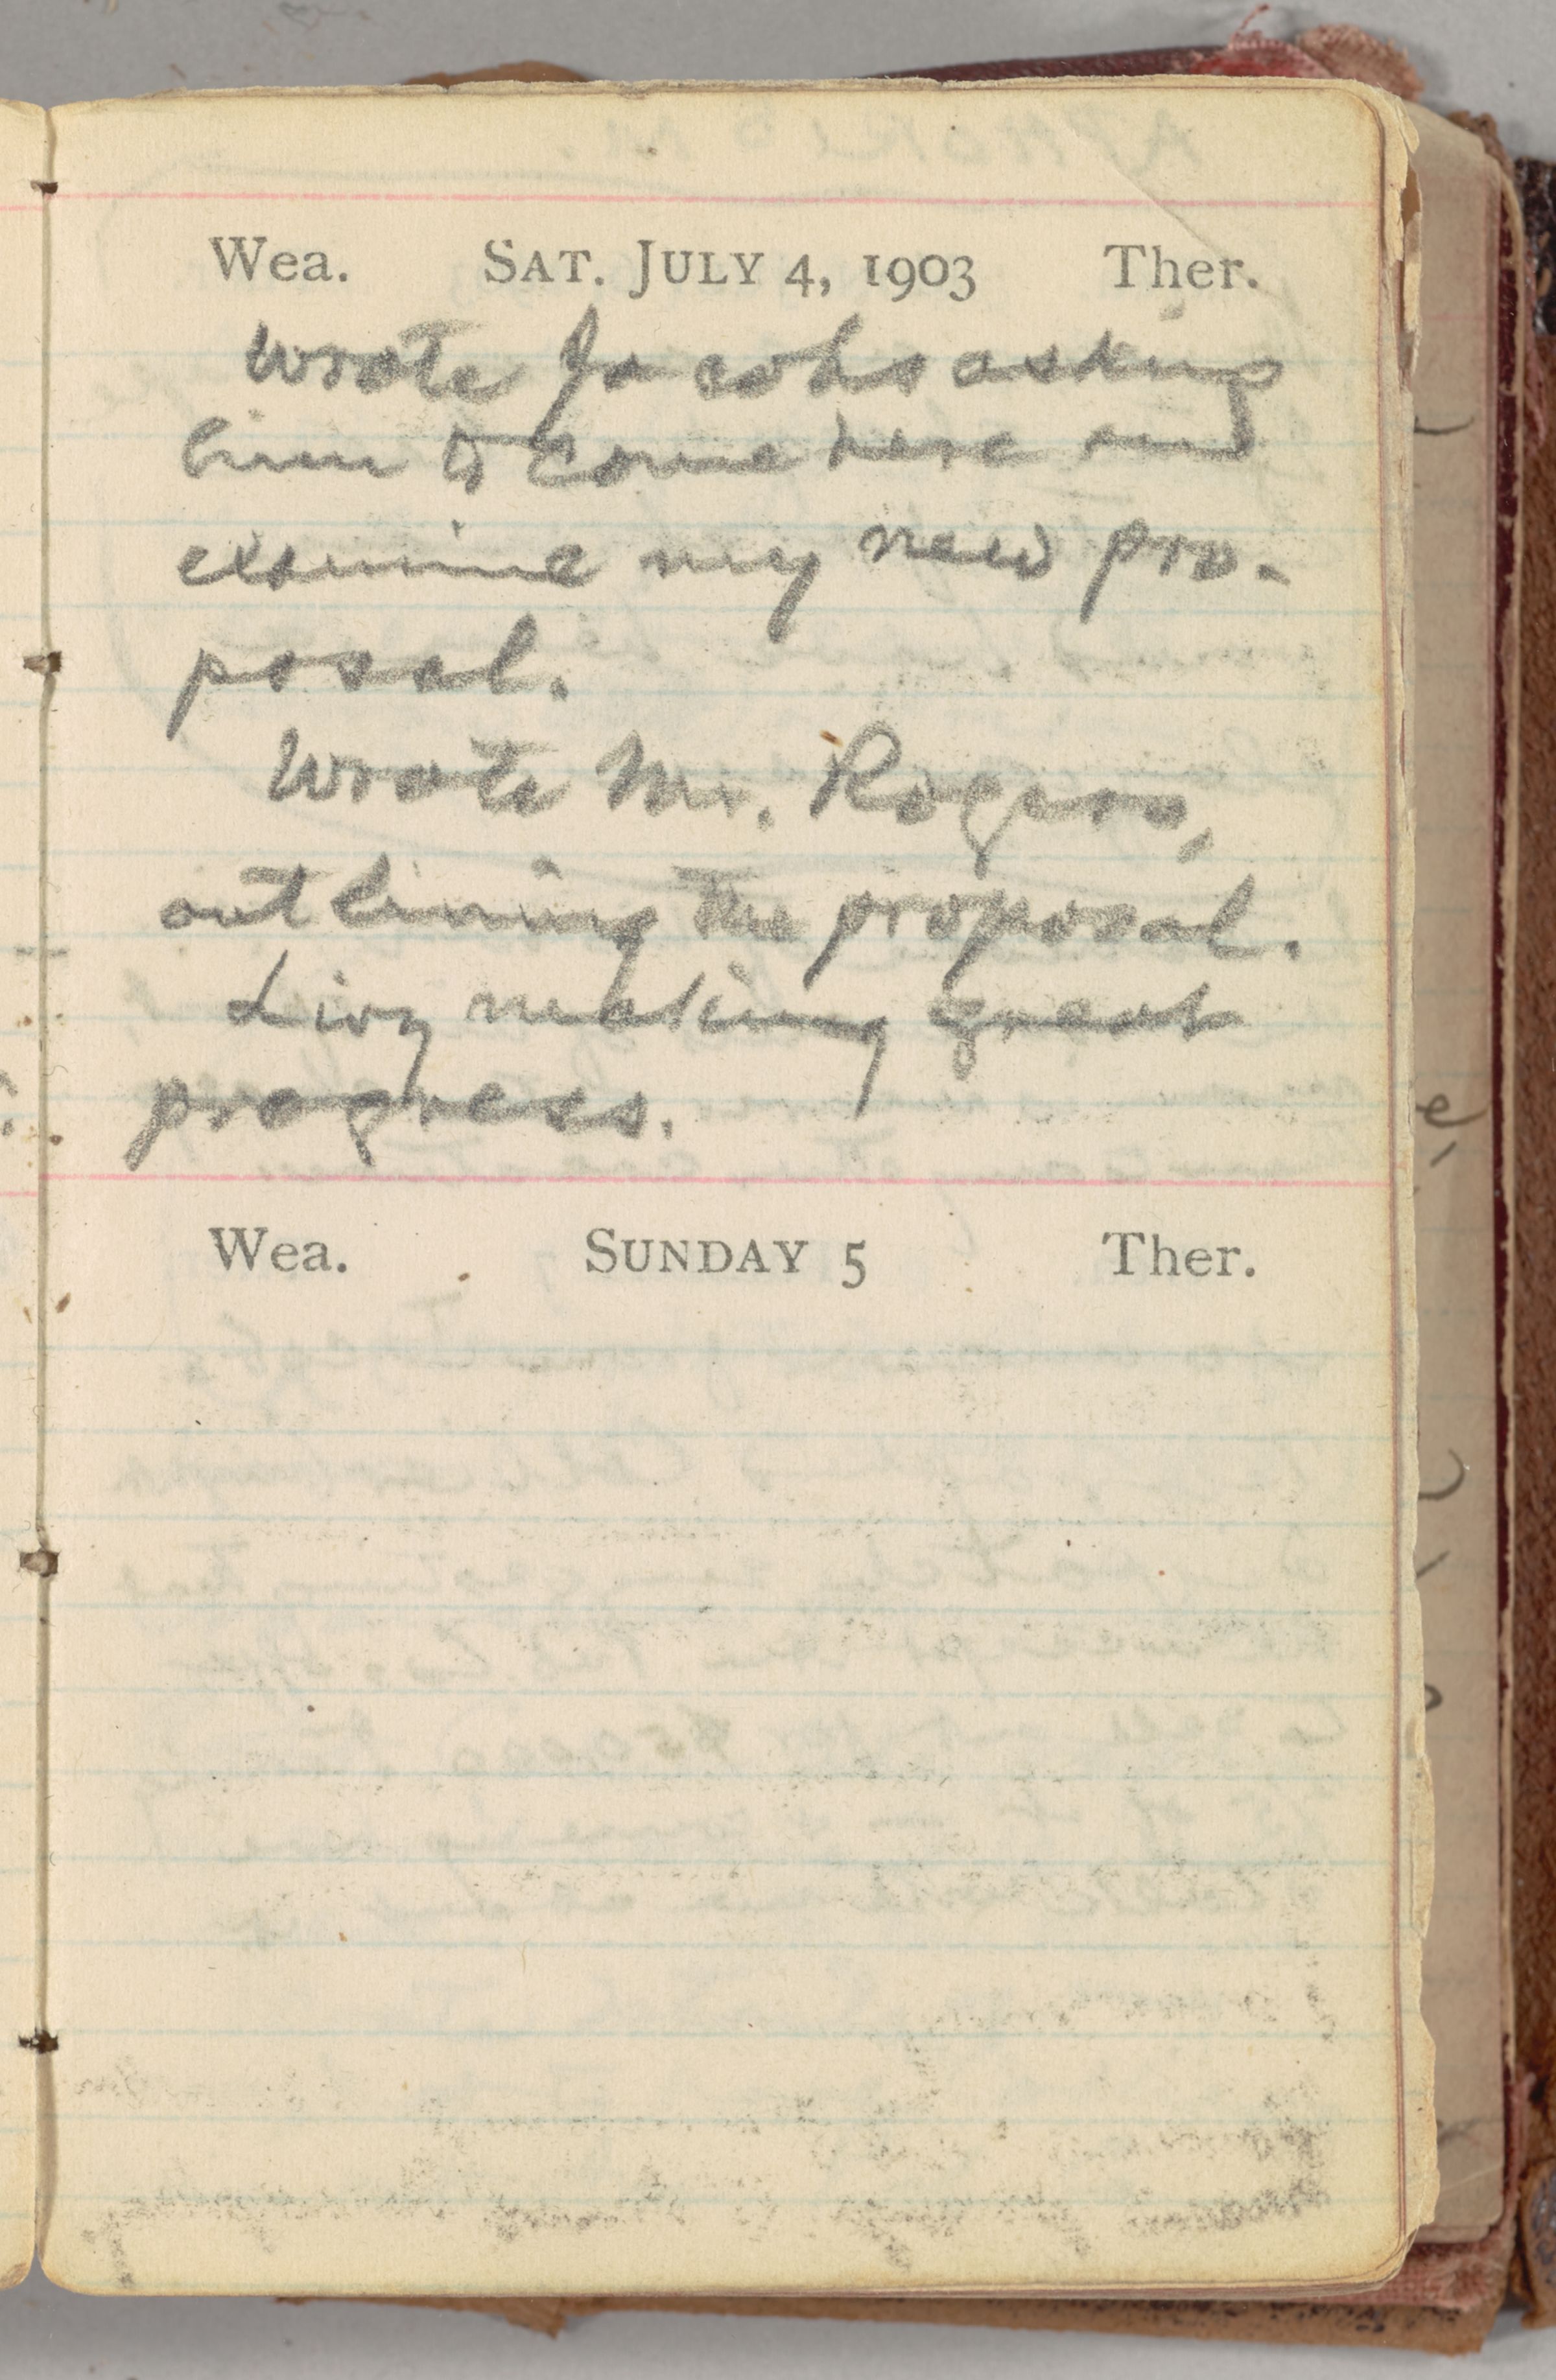 Wea. SAT. JULY 4, 1903 Ther.
Wrote Jacobs asking
him to come here and
examine my new pro-
posal.
Wrote Mr. Rogers,
outlining the proposal.
Livy making great
progress.
Wea. SUNDAY 5 Ther.